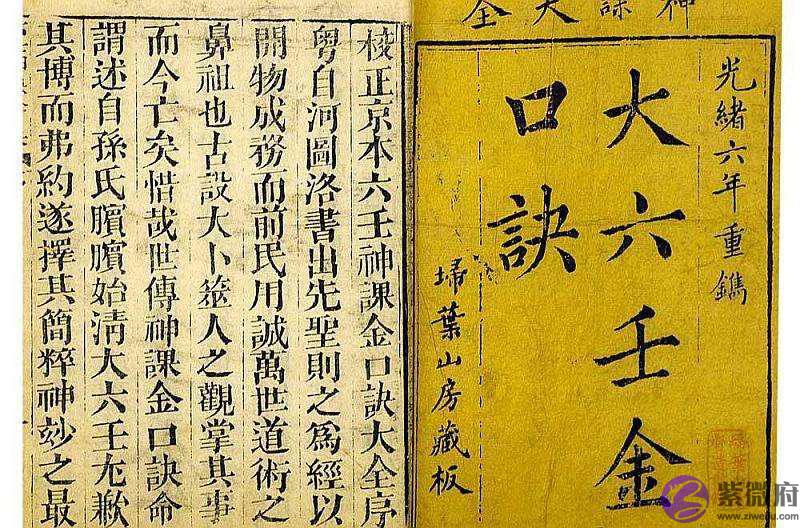 神課大全
光緒六年重鐫
大六壬金
口訣
埽葉山房藏板
校正京本六壬神課金口訣大全序
粤自河圖洛書出先聖則之爲經以
開物成務而前民用誠萬世道術之
鼻祖也古設大卜簭人之觀掌其事
而今亡矣惜哉世傳神課金口訣命
謂述自孫氏臏臏始清大六壬尤歉
其博而弗約遂擇其簡粹神玅之最
紫微府
www.ziweifu.com